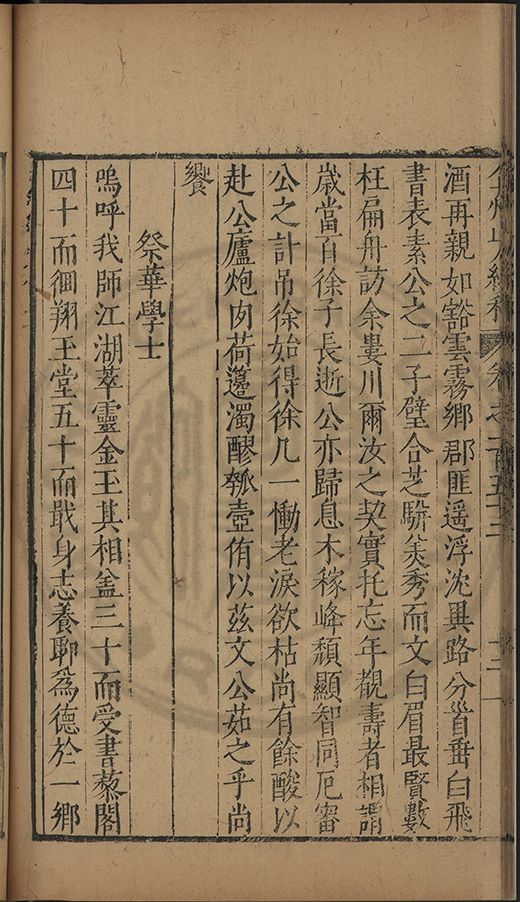 弇州山人續稿 卷之一百五十三 十二
酒再親如豁雲霧鄉郡匪遥浮沈異路分首垂白飛
書表素公之二子璧合芝駢矦秀而文白眉最賢數
枉扁舟訪余婁川爾汝之契實托忘年覩壽者相謂
歳當百徐子長逝公亦歸息木稼峰頽顯智同厄審
公之訃吊徐始得徐几一慟老淚欲枯尚有餘酸以
赴公廬炮肉荷籩濁醪瓠壺侑以茲文公茹之乎尚
饗
祭華學士
嗚呼我師江湖萃靈金玉其相葢三十而受書蓺閣
四十而徊翔玉堂五十而戢身志養聊爲德於一鄉